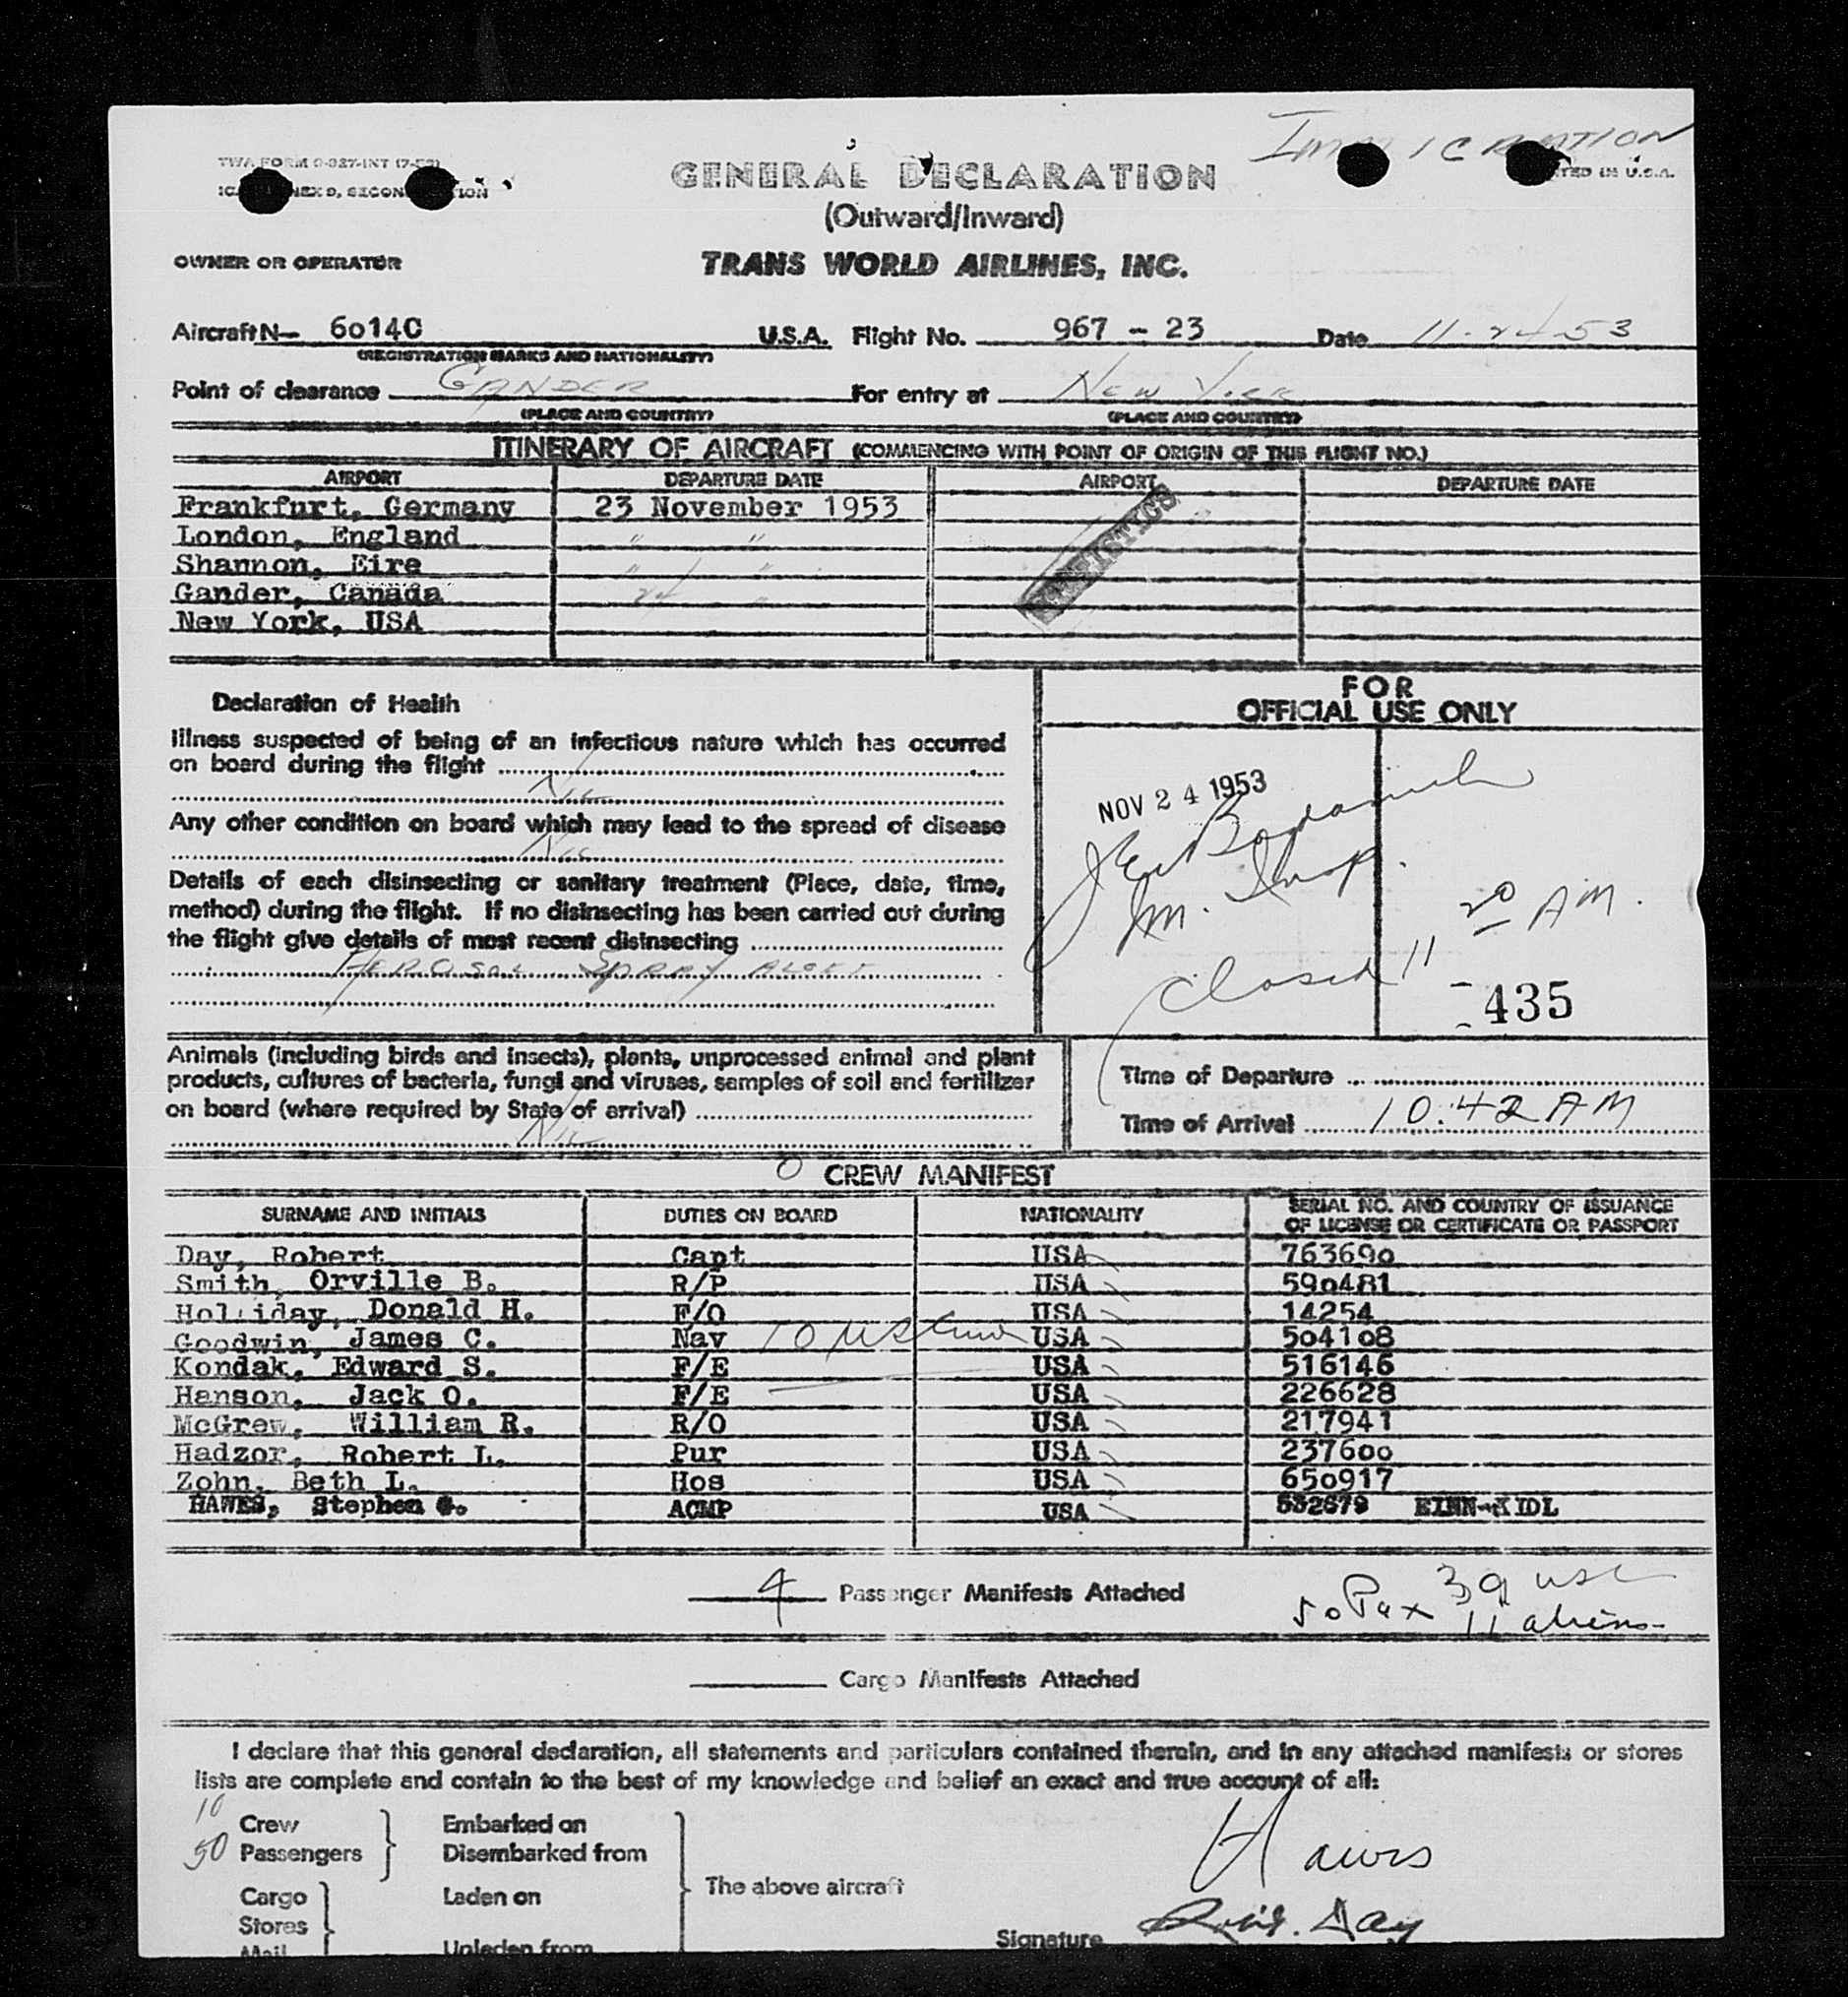 IMMIGRATION
TWA FORM
GENERAL DECLARATION
IN U.S.A.
(Outward/Inward)
OWNER OR OPERATOR
TRANS WORLD AIRLINES, INC.
Aircraft N- 6014C U.S.A. Flight No. 967 - 23 Date 11-24-53
(REGISTRATION MARKS AND NATIONALITY)
Point of clearance GANDER For entry at NEW YORK
(PLACE AND COUNTRY) (PLACE AND COUNTRY)
ITINERARY OF AIRCRAFT (COMMENCING WITH POINT OF ORIGIN OF THIS FLIGHT NO.)
AIRPORT DEPARTURE DATE AIRPORT DEPARTURE DATE
Frankfurt, Germany 23 November 1953
London, England " "
Shannon, Eire " "
Gander, Canada 24 "
New York, USA
Declaration of Health
Illness suspected of being of an infectious nature which has occurred
on board during the flight
Nil
Any other condition on board which may lead to the spread of disease
Nil
Details of each disinsecting or sanitary treatment (Place, date, time,
method) during the flight. If no disinsecting has been carried out during
the flight give details of most recent disinsecting
AEROSOL SPRAY
FOR
OFFICIAL USE ONLY
NOV 24 1953
Im. Insp.
Closed 11 20 AM.
435
Animals (including birds and insects), plants, unprocessed animal and plant
products, cultures of bacteria, fungi and viruses, samples of soil and fertilizer
on board (where required by State of arrival)
Nil
Time of Departure
Time of Arrival 10:42 AM
CREW MANIFEST
SURNAME AND INITIALS DUTIES ON BOARD NATIONALITY SERIAL NO. AND COUNTRY OF ISSUANCE
OF LICENSE OR CERTIFICATE OR PASSPORT
Day, Robert Capt USA 763690
Smith, Orville B. R/P USA 590481
Holliday, Donald H. F/O USA 14254
Goodwin, James C. Nav 10 USA 504108
Kondak, Edward S. F/E USA 516146
Hanson, Jack O. F/E USA 226628
McGrew, William R. R/O USA 217941
Hadzor, Robert L. Pur USA 237600
Zohn, Beth L. Hos USA 650917
HAWES, Stephen G. ACMP USA 532679 EINN-KIDL
4 Passenger Manifests Attached
50 Pax 39 USC
11 aliens
Cargo Manifests Attached
I declare that this general declaration, all statements and particulars contained therein, and in any attached manifests or stores
lists are complete and contain to the best of my knowledge and belief an exact and true account of all:
10 Crew Embarked on
50 Passengers Disembarked from
The above aircraft
Cargo Laden on
Stores
Mail Unladen from
Hawes
Signature Robt. Day